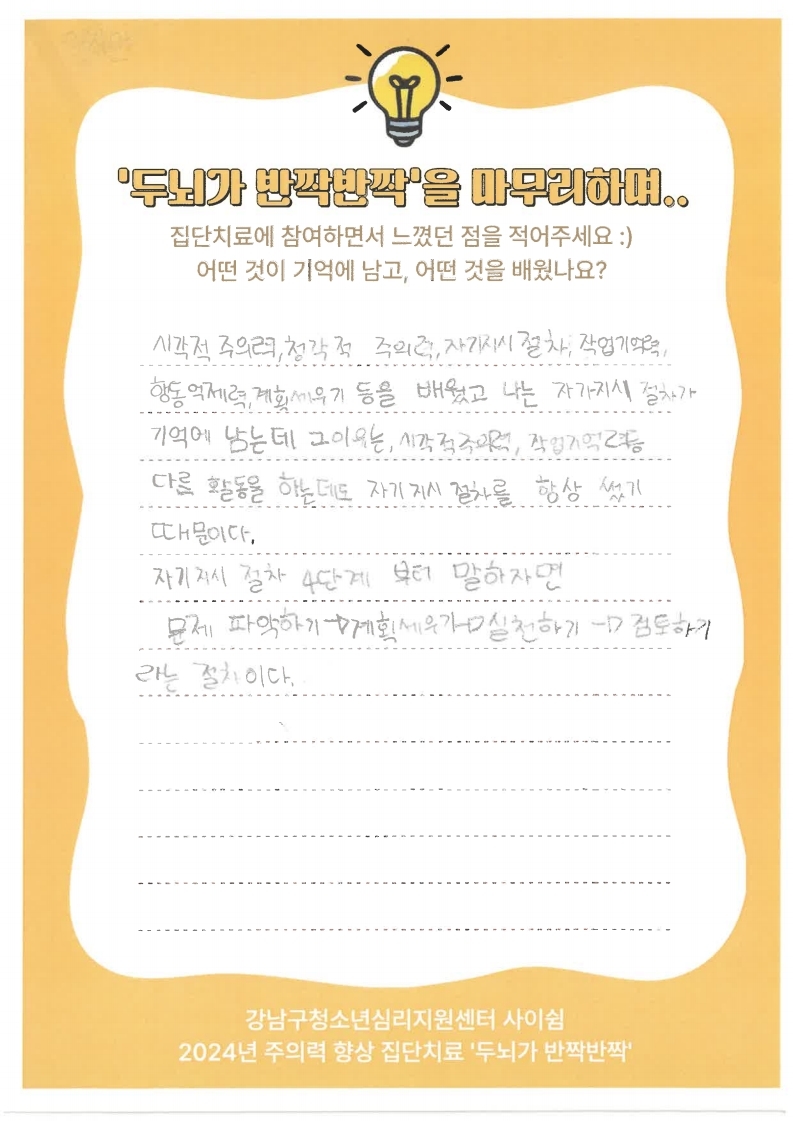 '두뇌가 반짝반짝'을 마무리하며..
집단치료에 참여하면서 느꼈던 점을 적어주세요 :)
어떤 것이 기억에 남고, 어떤 것을 배웠나요?
시각적 주의력,청각적 주의력,자기지시 절차, 작업기억력,
행동억제력,계획세우기 등을 배웠고 나는 자기지시 절차가
기억에 남는데 그이유는, 시각적주의력, 작업기억력등
다른 활동을 하는데도 자기지시 절차를 항상 썼기
때문이다.
자기지시 절차 4단계 부터 말하자면
문제 파악하기→계획세우기→실천하기→점토하기
라는 절차이다.
강남구청소년심리지원센터 사이쉼
2024년 주의력 향상 집단치료 '두뇌가 반짝반짝'